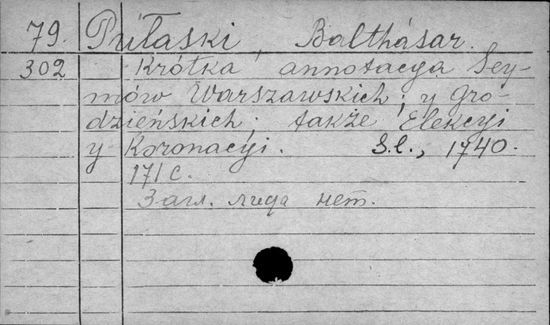 79. Pułaski, Balthásar.
302 Krótka annotacya Sey-
mów Warszawskich, y Gro-
dzieńskich; także Elekcyi
y Koronacyi. S.l., 1740.
171 c.
Загл. листа нет.